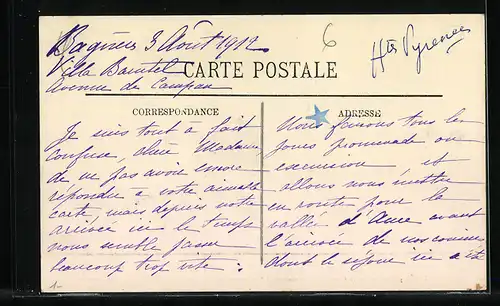 Bagnères 3 Août 1912
6
Htes Pyrénées
Villa Bamtel
Avenue de Campan
CARTE POSTALE
CORRESPONDANCE
Je suis tout à fait
confuse, chère Madame
de ne pas avoir encore
répondu a votre aimable
carte, mais depuis notre
arrivée ici le temps
nous semble passer
beaucoup trop vite.
ADRESSE
Nous faisons tous les
jours promenade ou
excursion et
allons nous mettre
en route pour la
vallée d'Aure avant
l'arrivée de nos cousines
dont le séjour ici a été
1-